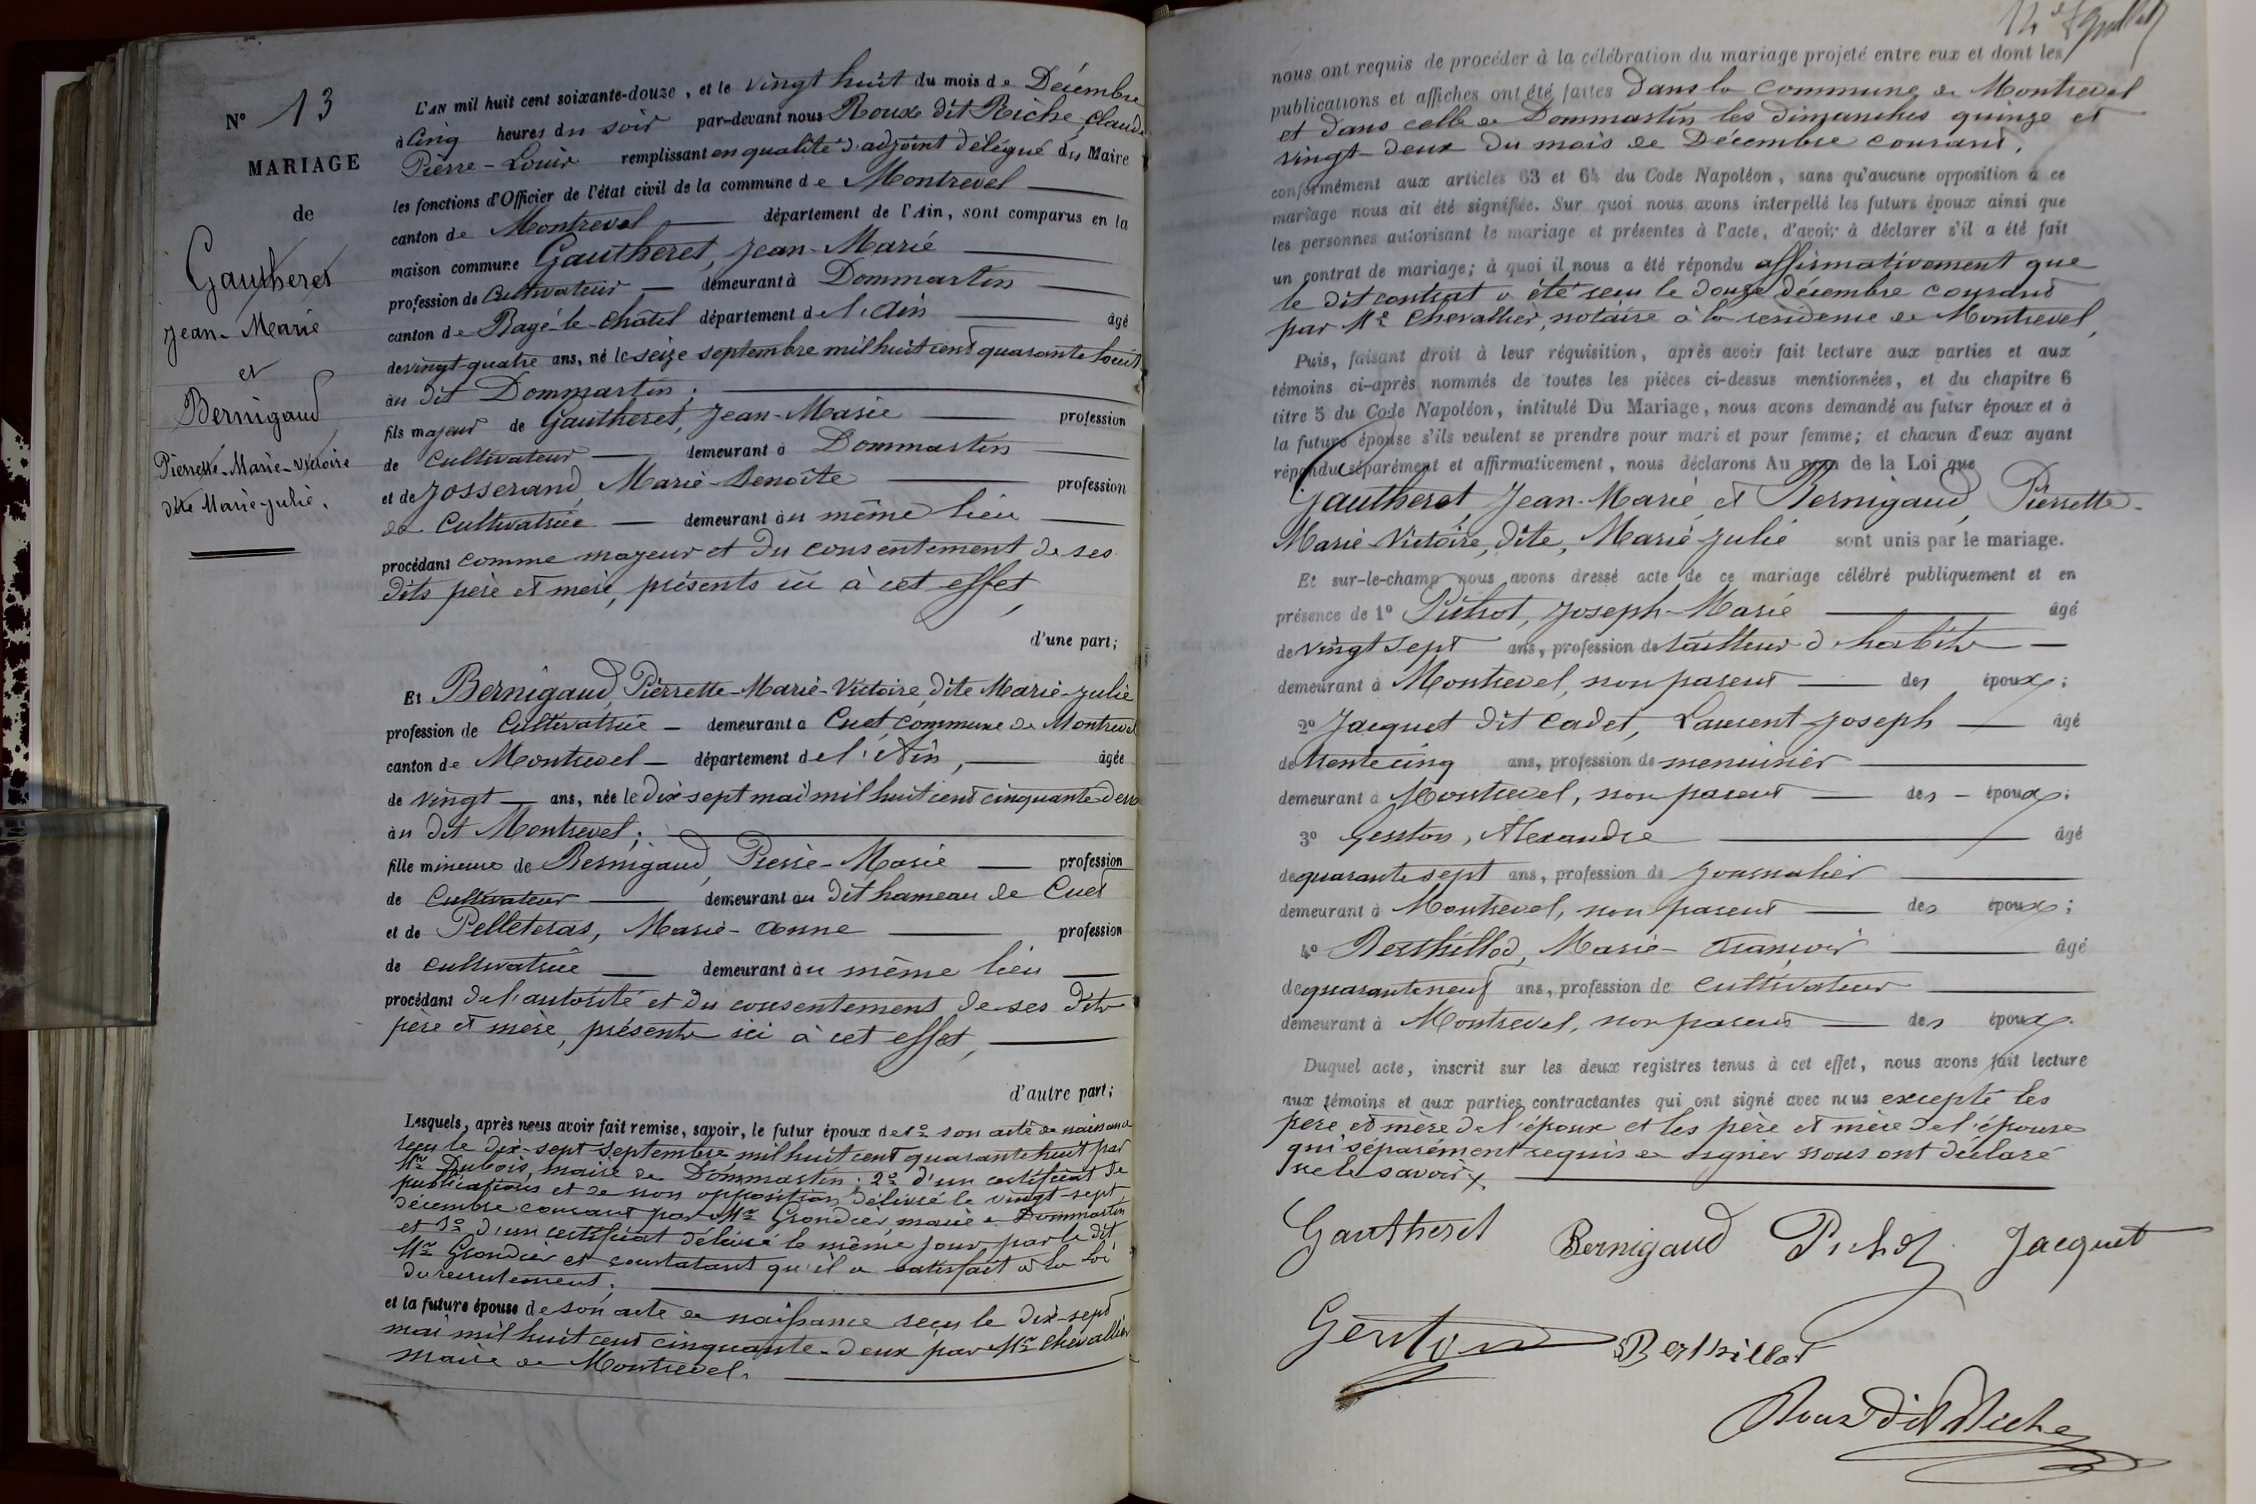 N° 13
MARIAGE
de
Gautheret
Jean-Marie
et
Bernigaud
Pierrette-Marie-Victoire
dite Marie-Julie.
L'AN mil huit cent soixante-douze, et le vingt huit du mois de Décembre
à Cinq heures du soir par-devant nous Roux dit Riche, Claude
Pierre-Louis remplissant en qualité d'adjoint délégué du Maire
les fonctions d'Officier de l'état civil de la commune de Montrevel
canton de Montrevel département de l'Ain, sont comparus en la
maison commune Gautheret, Jean-Marie
profession de Cultivateur demeurant à Dommartin
canton de Bagé-le-Châtel département de l'Ain âgé
de vingt-quatre ans, né le seize septembre mil huit cent quarante huit
au dit Dommartin;
fils majeur de Gautheret, Jean-Marie profession
de Cultivateur demeurant à Dommartin
et de Josserand, Marie-Benoîte profession
de Cultivatrice demeurant au même lieu
procédant comme majeur et du consentement de ses
dits père et mère, présents ici à cet effet,
d'une part;
Et Bernigaud, Pierrette-Marie-Victoire, dite Marie-Julie
profession de Cultivatrice demeurant à Cuet, commune de Montrevel
canton de Montrevel département de l'Ain, âgée
de vingt ans, née le dix sept mai mil huit cent cinquante deux
au dit Montrevel;
fille mineure de Bernigaud, Pierre-Marie profession
de Cultivateur demeurant au dit hameau de Cuet
et de Pelleteras, Marie-Anne profession
de cultivatrice demeurant au même lieu
procédant de l'autorité et du consentement de ses dits
père et mère, présents ici à cet effet,
d'autre part;
Lesquels, après nous avoir fait remise, savoir, le futur époux de 1° son acte de naissance
reçu le dix-sept septembre mil huit cent quarante huit par
Mr Dubois, maire de Dommartin; 2° d'un certificat de
publications et de non opposition délivré le vingt-sept
décembre courant par Mr Grondier, maire de Dommartin
et 3° d'un certificat délivré le même jour par le dit
Mr Grondier et constatant qu'il a satisfait à la loi
du recrutement;
et la future épouse de son acte de naissance reçu le dix-sept
mai mil huit cent cinquante-deux par Mr Chevallier
maire de Montrevel.
nous ont requis de procéder à la célébration du mariage projeté entre eux et dont les
publications et affiches ont été faites dans la commune de Montrevel
et dans celle de Dommartin les dimanches quinze et
vingt-deux du mois de Décembre courant,
conformément aux articles 63 et 64 du Code Napoléon, sans qu'aucune opposition à ce
mariage nous ait été signifiée. Sur quoi nous avons interpellé les futurs époux ainsi que
les personnes autorisant le mariage et présentes à l'acte, d'avoir à déclarer s'il a été fait
un contrat de mariage; à quoi il nous a été répondu affirmativement que
le dit contrat a été reçu le douze décembre courant
par Me Chevallier, notaire à la résidence de Montrevel,
Puis, faisant droit à leur réquisition, après avoir fait lecture aux parties et aux
témoins ci-après nommés de toutes les pièces ci-dessus mentionnées, et du chapitre 6
titre 5 du Code Napoléon, intitulé Du Mariage, nous avons demandé au futur époux et à
la future épouse s'ils veulent se prendre pour mari et pour femme; et chacun d'eux ayant
répondu séparément et affirmativement, nous déclarons Au nom de la Loi que
Gautheret, Jean-Marie et Bernigaud, Pierrette-
Marie-Victoire, dite, Marie-Julie sont unis par le mariage.
Et sur-le-champ nous avons dressé acte de ce mariage célébré publiquement et en
présence de 1° Joseph-Marie âgé
de vingt sept ans, profession de tailleur d'habits
demeurant à Montrevel, non parent des époux;
2° Jacquet dit Cadet, Laurent-Joseph âgé
de trente cinq ans, profession de menuisier
demeurant à Montrevel, non parent des époux;
3° Genton, Alexandre âgé
de quarante sept ans, profession de journalier
demeurant à Montrevel, non parent des époux;
4° Berthillod, Marie-François âgé
de quarante neuf ans, profession de cultivateur
demeurant à Montrevel, non parent des époux.
Duquel acte, inscrit sur les deux registres tenus à cet effet, nous avons fait lecture
aux témoins et aux parties contractantes qui ont signé avec nous excepté les
père et mère de l'époux et les père et mère de l'épouse
qui séparément requis de signer nous ont déclaré
ne le savoir
Gautheret Bernigaud Jacquet
Genton Berthillod
Roux dit Riche